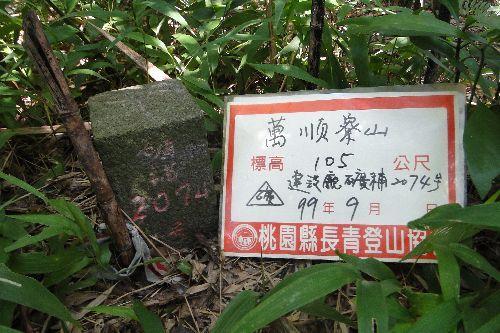 萬順寮山
標高 105 公尺
建設廳礦補2074号
99年9月 日
桃園縣長青登山
2074